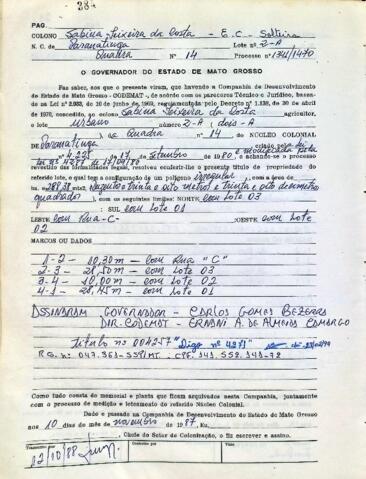 PAG.
COLONO Sabina Teixeira da Costa - E.C. - Solteira
N. C. de Paranatinga Lote nº 2-A
Quadra Nº 14 Processo nº 1344/1470
O GOVERNADOR DO ESTADO DE MATO GROSSO
Faz saber, aos que o presente virem, que havendo a Companhia de Desenvolvimento
do Estado de Mato Grosso - CODEMAT -, de acordo com os pareceres Técnico e Jurídico, basea-
dos na Lei nº 2.933, de 20 de junho de 1969, regulamentada pelo Decreto nº 1.138, de 30 de abril
de 1970, concedido, ao colono Sabina Teixeira da Costa agricultor,
o lote urbano número 2-A (dois-A
) da Quadra nº 14 do NÚCLEO COLONIAL
de Paranatinga criado pela Lei
nº 4.225 de 17 de Setembro de 19 80 e modificada pela
Lei nº 4287 de 17/04/80 e achando-se o processo
revestido das formalidades legais, resolveu conferir-lhe o presente título de propriedade do
referido lote, o qual tem a configuração de um polígono irregular, com a área de
ha. 288,38 m2, duzentos e trinta e oito metros e trinta e oito decimetro
quadrado), com os seguintes limites: NORTE com Lote 03
; SUL com Lote 01
LESTE com Rua-C- ; OESTE com Lote
02
MARCOS OU DADOS
1-2 - 10,30m - com Rua "C"
2-3 - 28,50m - com Lote 03
3-4 - 10,00m - com Lote 02
4-1 - 28,45m - com Lote 01
ASSINARAM GOVERNADOR - CARLOS GOMES BEZERRA
DIR. CODEMAT - ERNANI A. DE ALMEIDA CAMARGO
Titulo nº 004257 "Digo nº 4271"
R.G. nº 047.361-SSP/MT. CPF. 141.552.141-72
Como tudo consta do memorial e planta que ficam arquivados nesta Companhia, juntamente
com o processo de medição e loteamento do referido Núcleo Colonial.
Dado e passado na Companhia de Desenvolvimento do Estado de Mato Grosso
aos 10 dias do mês de novembro de 1987. Eu,
Chefe do Setor de Colonização, o fiz escrever e assino.
12/10/88